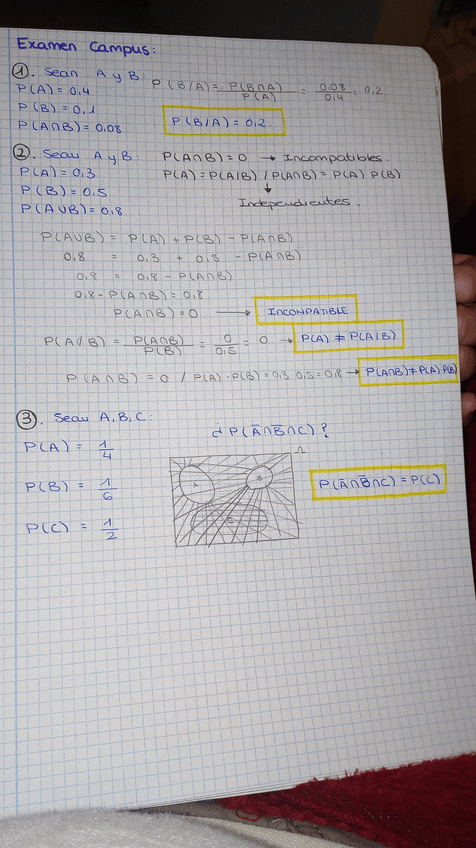 Examen Campus:
1. Sean A y B:
P(A)=0,4
P(B)=0,1
P(A∩B)=0,08
P(B/A)= P(B∩A)/P(A) = 0,08/0,4 = 0,2
P(B/A)=0,2
2. Sean A y B:
P(A)=0,3
P(B)=0,5
P(A∪B)=0,8
P(A∩B)=0 → Incompatibles.
P(A)=P(A|B) / P(A∩B)=P(A) P(B)
↓
Independientes.
P(A∪B) = P(A) + P(B) - P(A∩B)
0,8 = 0,3 + 0,5 - P(A∩B)
0,8 = 0,8 - P(A∩B)
0,8 - P(A∩B) = 0,8
P(A∩B) = 0 → INCOMPATIBLE
P(A/B) = P(A∩B)/P(B) = 0/0,5 = 0 → P(A) ≠ P(A|B)
P(A∩B) = 0 / P(A)·P(B)=0,3·0,5=0,8 → P(A∩B)≠P(A)P(B)
3. Sean A, B, C:
P(A) = 1/4
P(B) = 1/6
P(C) = 1/2
¿P(Ā∩B̄∩C)?
Ω
A
B
C
P(Ā∩B̄∩C) = P(C)